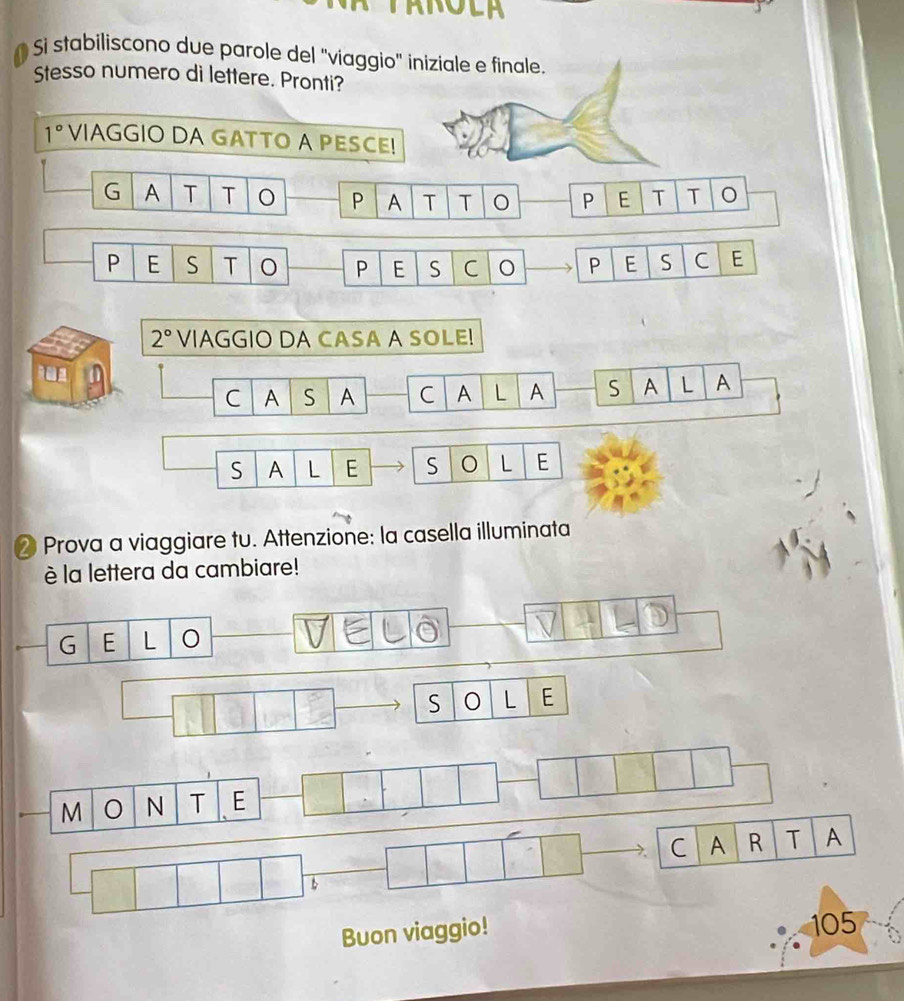 Si stabiliscono due parole del "viaggio" iniziale e finale.
Stesso numero di lettere. Pronti?
1° VIAGGIO DA GATTO A PESCE!
G A T T O P A T T O P E T T O
P E S T O P E S C O P E S C E
2° VIAGGIO DA CASA A SOLE!
C A S A C A L A S A L A
S A L E S O L E
2 Prova a viaggiare tu. Attenzione: la casella illuminata
è la lettera da cambiare!
G E L O V E L O V L O
S O L E
M O N T E
C A R T A
Buon viaggio!
105